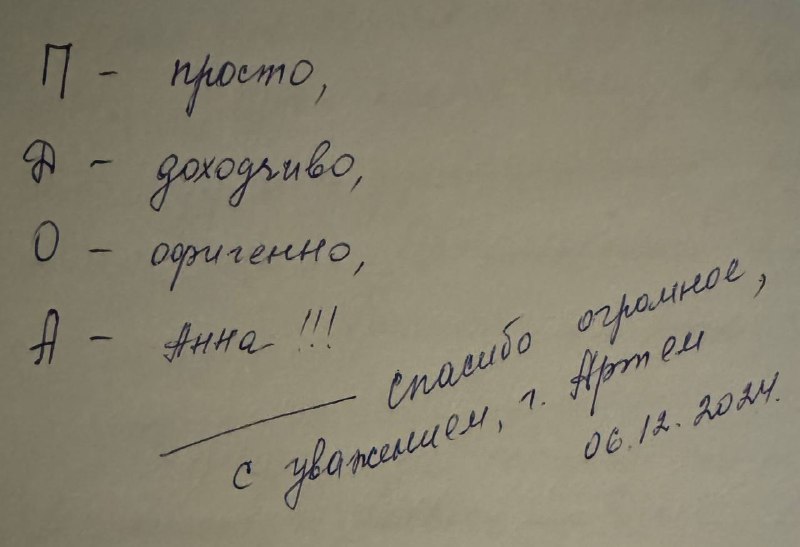 П - просто,
Д - доходчиво,
О - офигенно,
А - Анна !!!
спасибо огромное,
с уважением, г. Артем
06.12.2024.